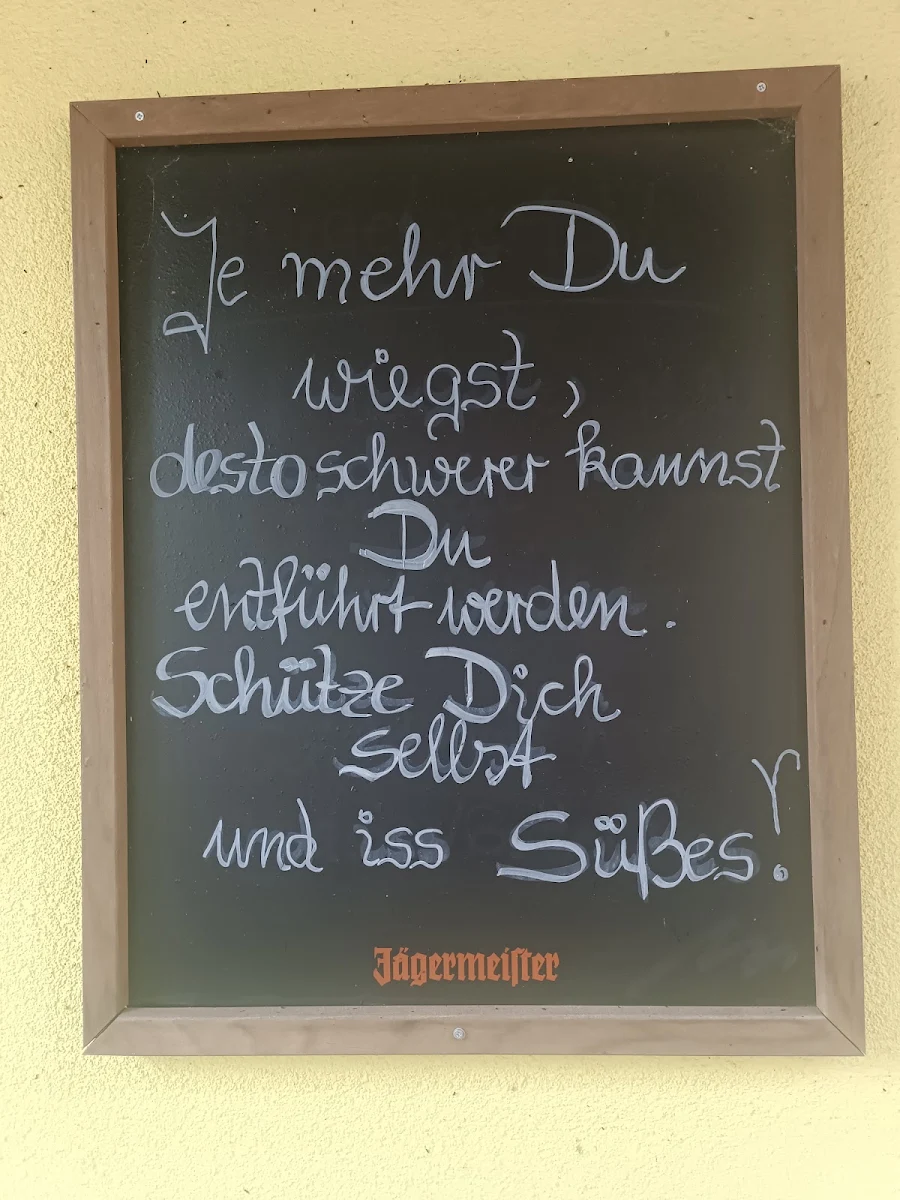 Je mehr Du
wiegst,
desto schwerer kannst
Du
entführt werden.
Schütze Dich
selbst
und iss Süßes!
Jägermeister